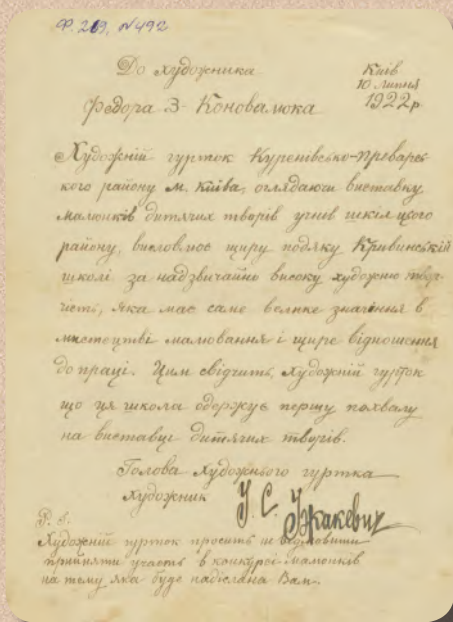 Ф. 269, №492
До художника
Федора З- Коновалюка
Київ
10 липня
1922 р
Художній гурток Куренівсько-Преварсь-
кого району м. Київа, оглядаючи виставку
малюнків дитячих творів учнів шкіл цього
району, висловлює щиру подяку Кривинській
школі за надзвичайно високу художню твор-
чість, яка має саме велике значіння в
мистецтві малювання і щире відношення
до праці. Цим свідчить, художній гурток
що ця школа одержує першу похвалу
на виставці дитячих творів.
Голова художнього гуртка
художник І. С. Їжакевич
P. S.
Художній гурток просить не відмовити
прийняти участь в конкурсі малюнків
на тему яка буде надіслана Вам.